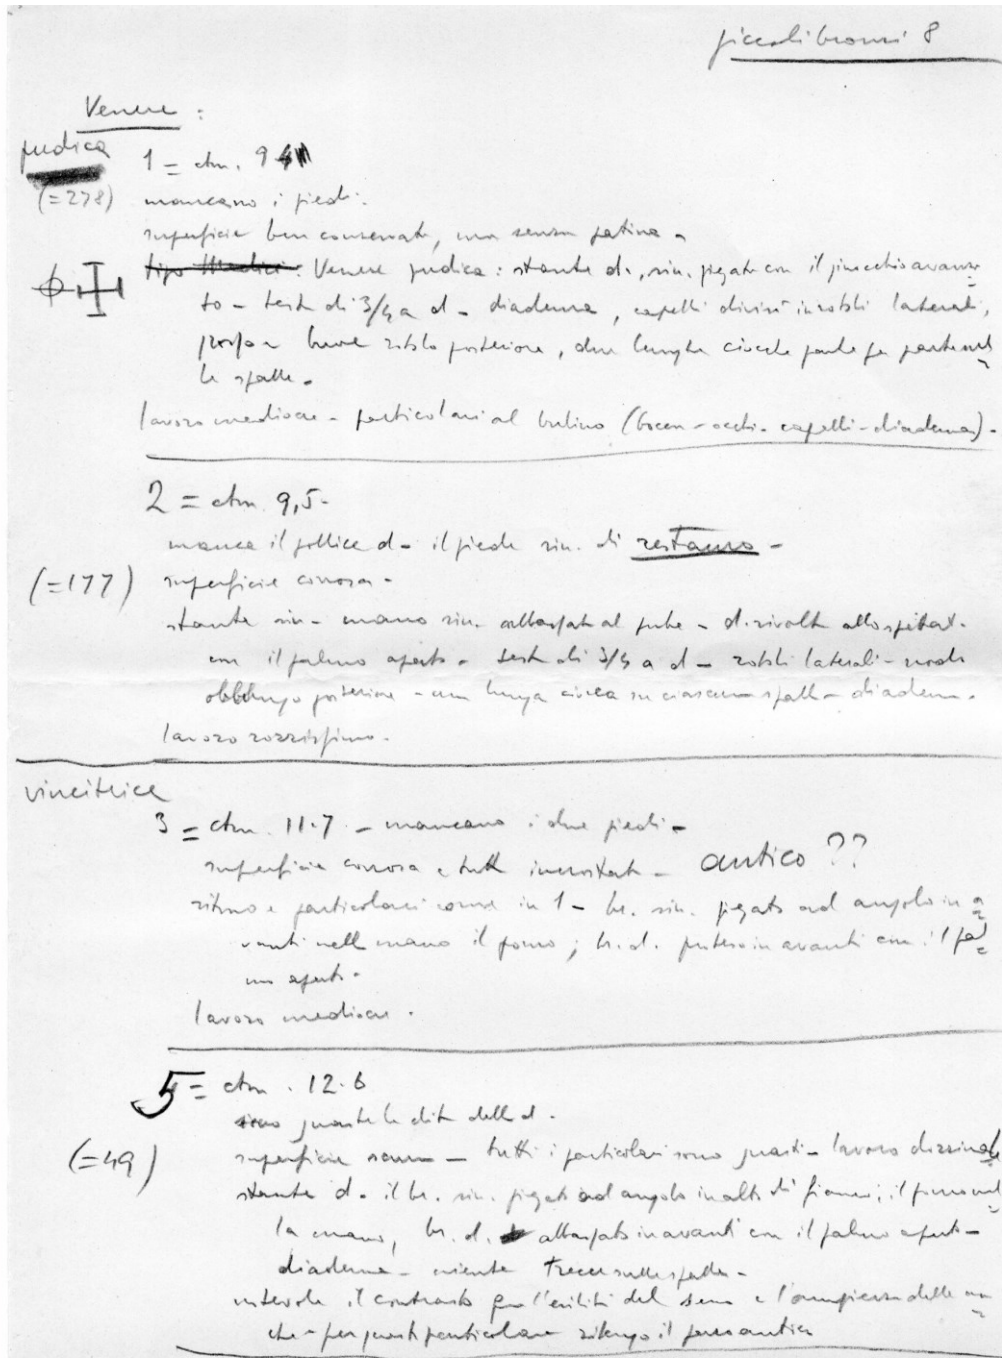 piccoli bronzi 8
Venere :
pudica
1 = ctm. 9
(=278) mancano i piedi.
superficie ben conservata, ma senza patina -
tipo Medici: Venere pudica: stante d., sin. piegata con il ginocchio avanza
to - testa di 3/4 a d - diadema, capelli divisi in rotoli laterali,
breve rotolo posteriore, due lunghe ciocche
le spalle -
lavoro mediocre - particolari al bulino (bocca - occhi - capelli - diadema) -
2 = ctm. 9,5 -
manca il pollice d - il piede sin. di restauro -
(=177) superficie corrosa -
stante sin - mano sin. abbassata al pube - d. rivolta allo spettat.
con il palmo aperto - testa di 3/4 a d - rotoli laterali - nodo
oblungo posteriore - una lunga ciocca su ciascuna spalla - diadema.
lavoro rozzissimo -
vincitrice
3 = ctm. 11.7 - mancano i due piedi -
superficie corrosa e tutta incrostata - antico ??
ritmo e particolari come in 1 - br. sin. piegato ad angolo in a
vanti nella mano il pomo; br. d. proteso in avanti con il pal
mo aperto -
lavoro mediocre .
5 = ctm . 12.6
sono guaste le dita della d -
(=49) superficie - tutti i particolari sono guasti - lavoro dozzinale
stante d - il br. sin. piegato ad angolo in alto di fianco; il pomo nel
la mano, br. d. abbassato in avanti con il palmo aperto -
diadema - niente trecce sulle spalle -
notevole il contrasto fra l'esilità del seno e l'ampiezza delle an
che - per questi particolari ritengo il pezzo antico